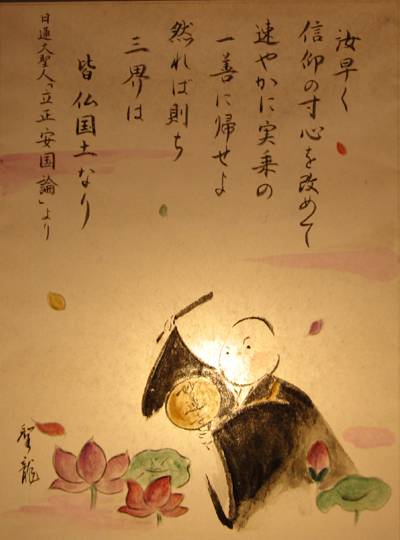 汝早く
信仰の寸心を改めて
速やかに実乗の
一善に帰せよ
然れば則ち
三界は
皆仏国土なり
日蓮大聖人「立正安国論」より
聖龍